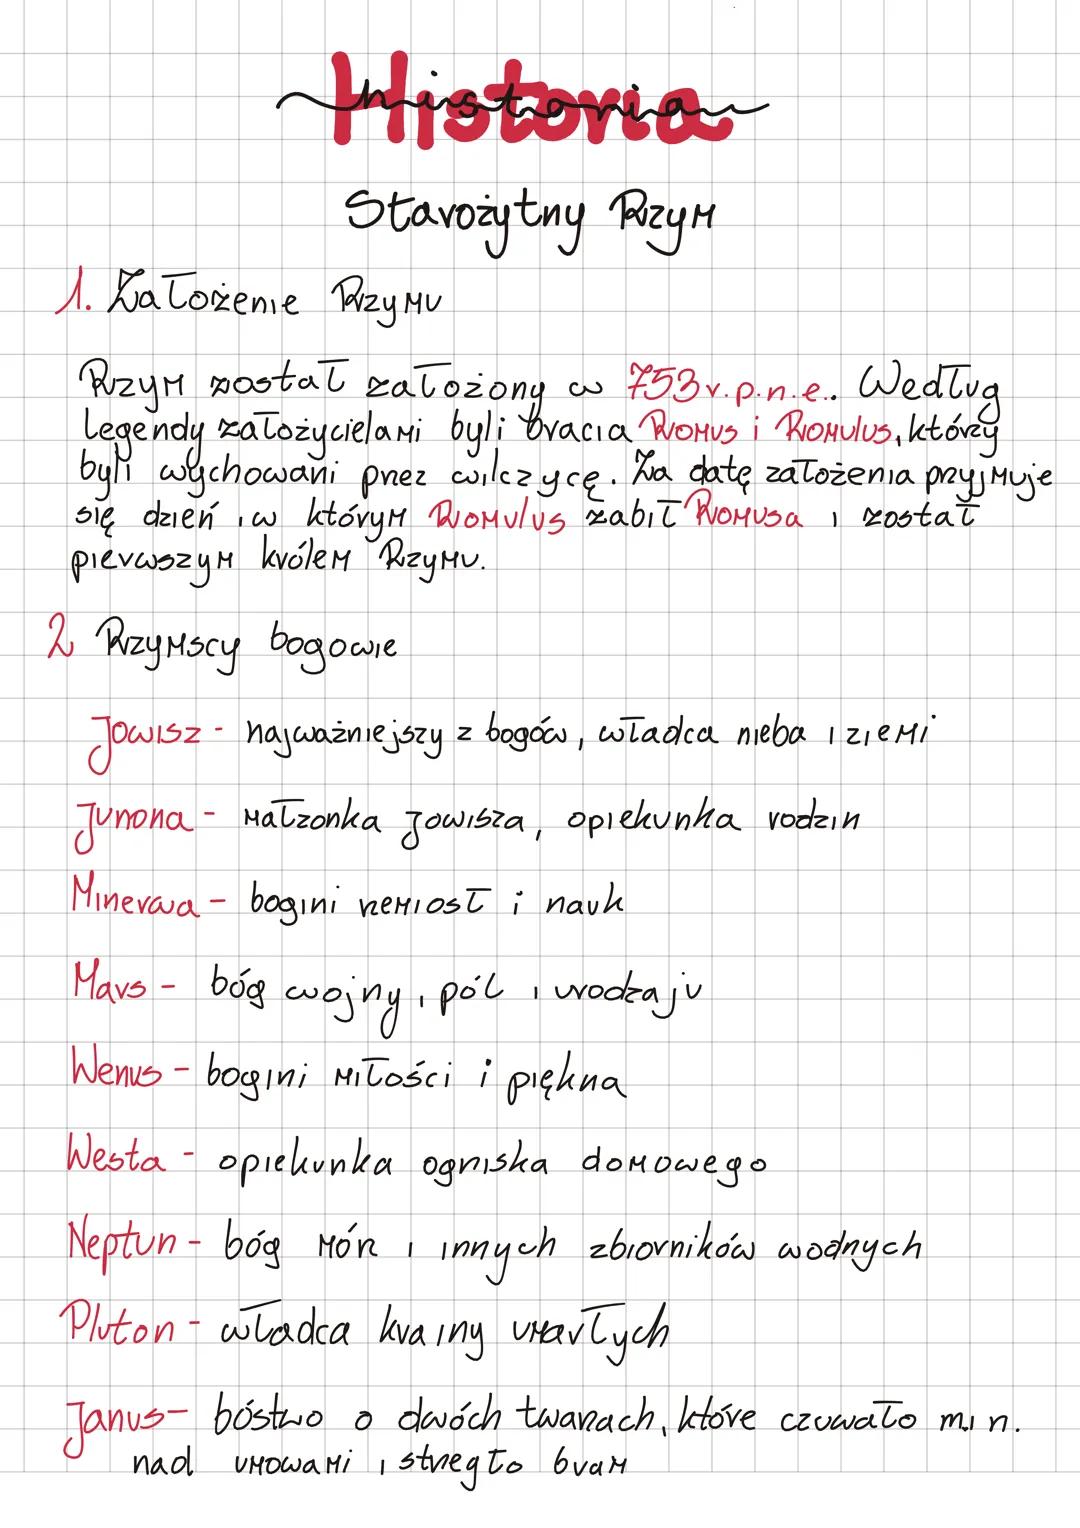 Historia
historia
Starożytny Rzym
1. Założenie Rzymu
Rzym został założony w 753 r. p.n.e.. Według
legendy założycielami byli bracia Romus i Romulus, którzy
byli wychowani przez wilczycę. Za datę założenia przyjmuje
się dzień, w którym Romulus zabił Romusa i został
pierwszym królem Rzymu.
2 Rzymscy bogowie
Jowisz - najważniejszy z bogów, władca nieba i ziemi
Junona - małzonka Jowisza, opiekunka rodzin
Minerwa - bogini rzemiosł i nauk
Mars - bóg wojny, pól i urodzaju
Wenus - bogini miłości i piękna
Westa - opiekunka ogniska domowego
Neptun - bóg mórz i innych zbiorników wodnych
Pluton - władca krainy umarłych
Janus - bóstwo o dwóch twarzach, które czuwało m.in.
nad umowami i strzegło bram